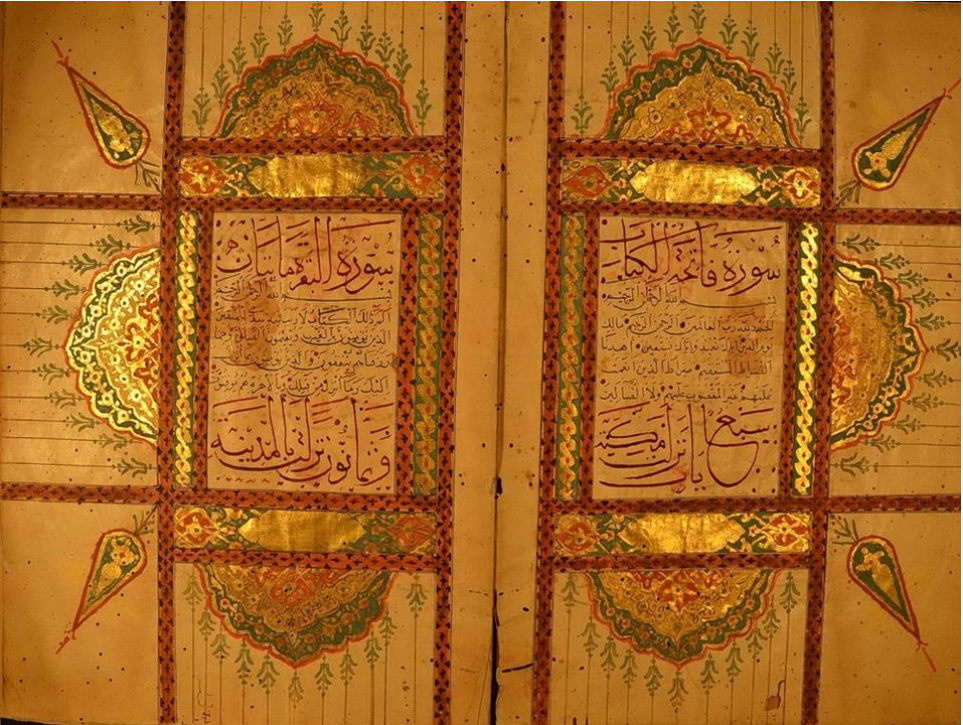 سورة فاتحة الكتاب
بسم الله الرحمن الرحيم
الحمد لله رب العالمين الرحمن الرحيم مالك
يوم الدين اياك نعبد واياك نستعين اهدنا
الصراط المستقيم صراط الذين انعمت
عليهم غير المغضوب عليهم ولا الضالين
سبع ايات
سورة البقرة مايتان
بسم الله الرحمن الرحيم
الم ذلك الكتاب لا ريب فيه هدى للمتقين
الذين يؤمنون بالغيب ويقيمون الصلوة ومما
رزقناهم ينفقون والذين يؤمنون بما انزل
اليك وما انزل من قبلك وبالاخرة هم يوقنون
وثمانون نزلت بالمدينه